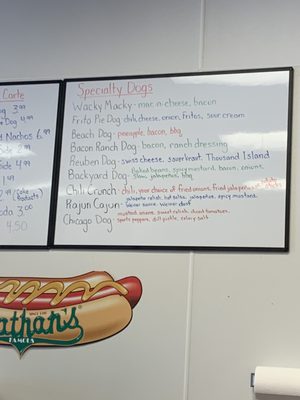 Carte
3.99
Dog 4.99
Nachos 6.99
4.99
4.99
1.99
2.99
products)
soda 3.00
4.50
Specialty Dogs
Wacky Macky- mac n cheese, bacon
Frito Pie Dog- chili, cheese, onion, fritos, sour cream
Beach Dog- pineapple, bacon, bbq
Bacon Ranch Dog- bacon, ranch dressing
Reuben Dog- swiss cheese, sauerkraut, Thousand Island
Baked beans, spicy mustard, bacon, onions,
Backyard Dog- slaw, jalapeños, bbq
Chili Crunch- chili, your choice of fried onions, fried jalapeños
jalapeño relish, hot salsa, jalapeños, spicy mustard,
Rajun Cajun-
mustard, onions, sweet relish, diced tomatoes,
Chicago Dog- sport peppers, dill pickle, celery salt
Nathan's
FAMOUS